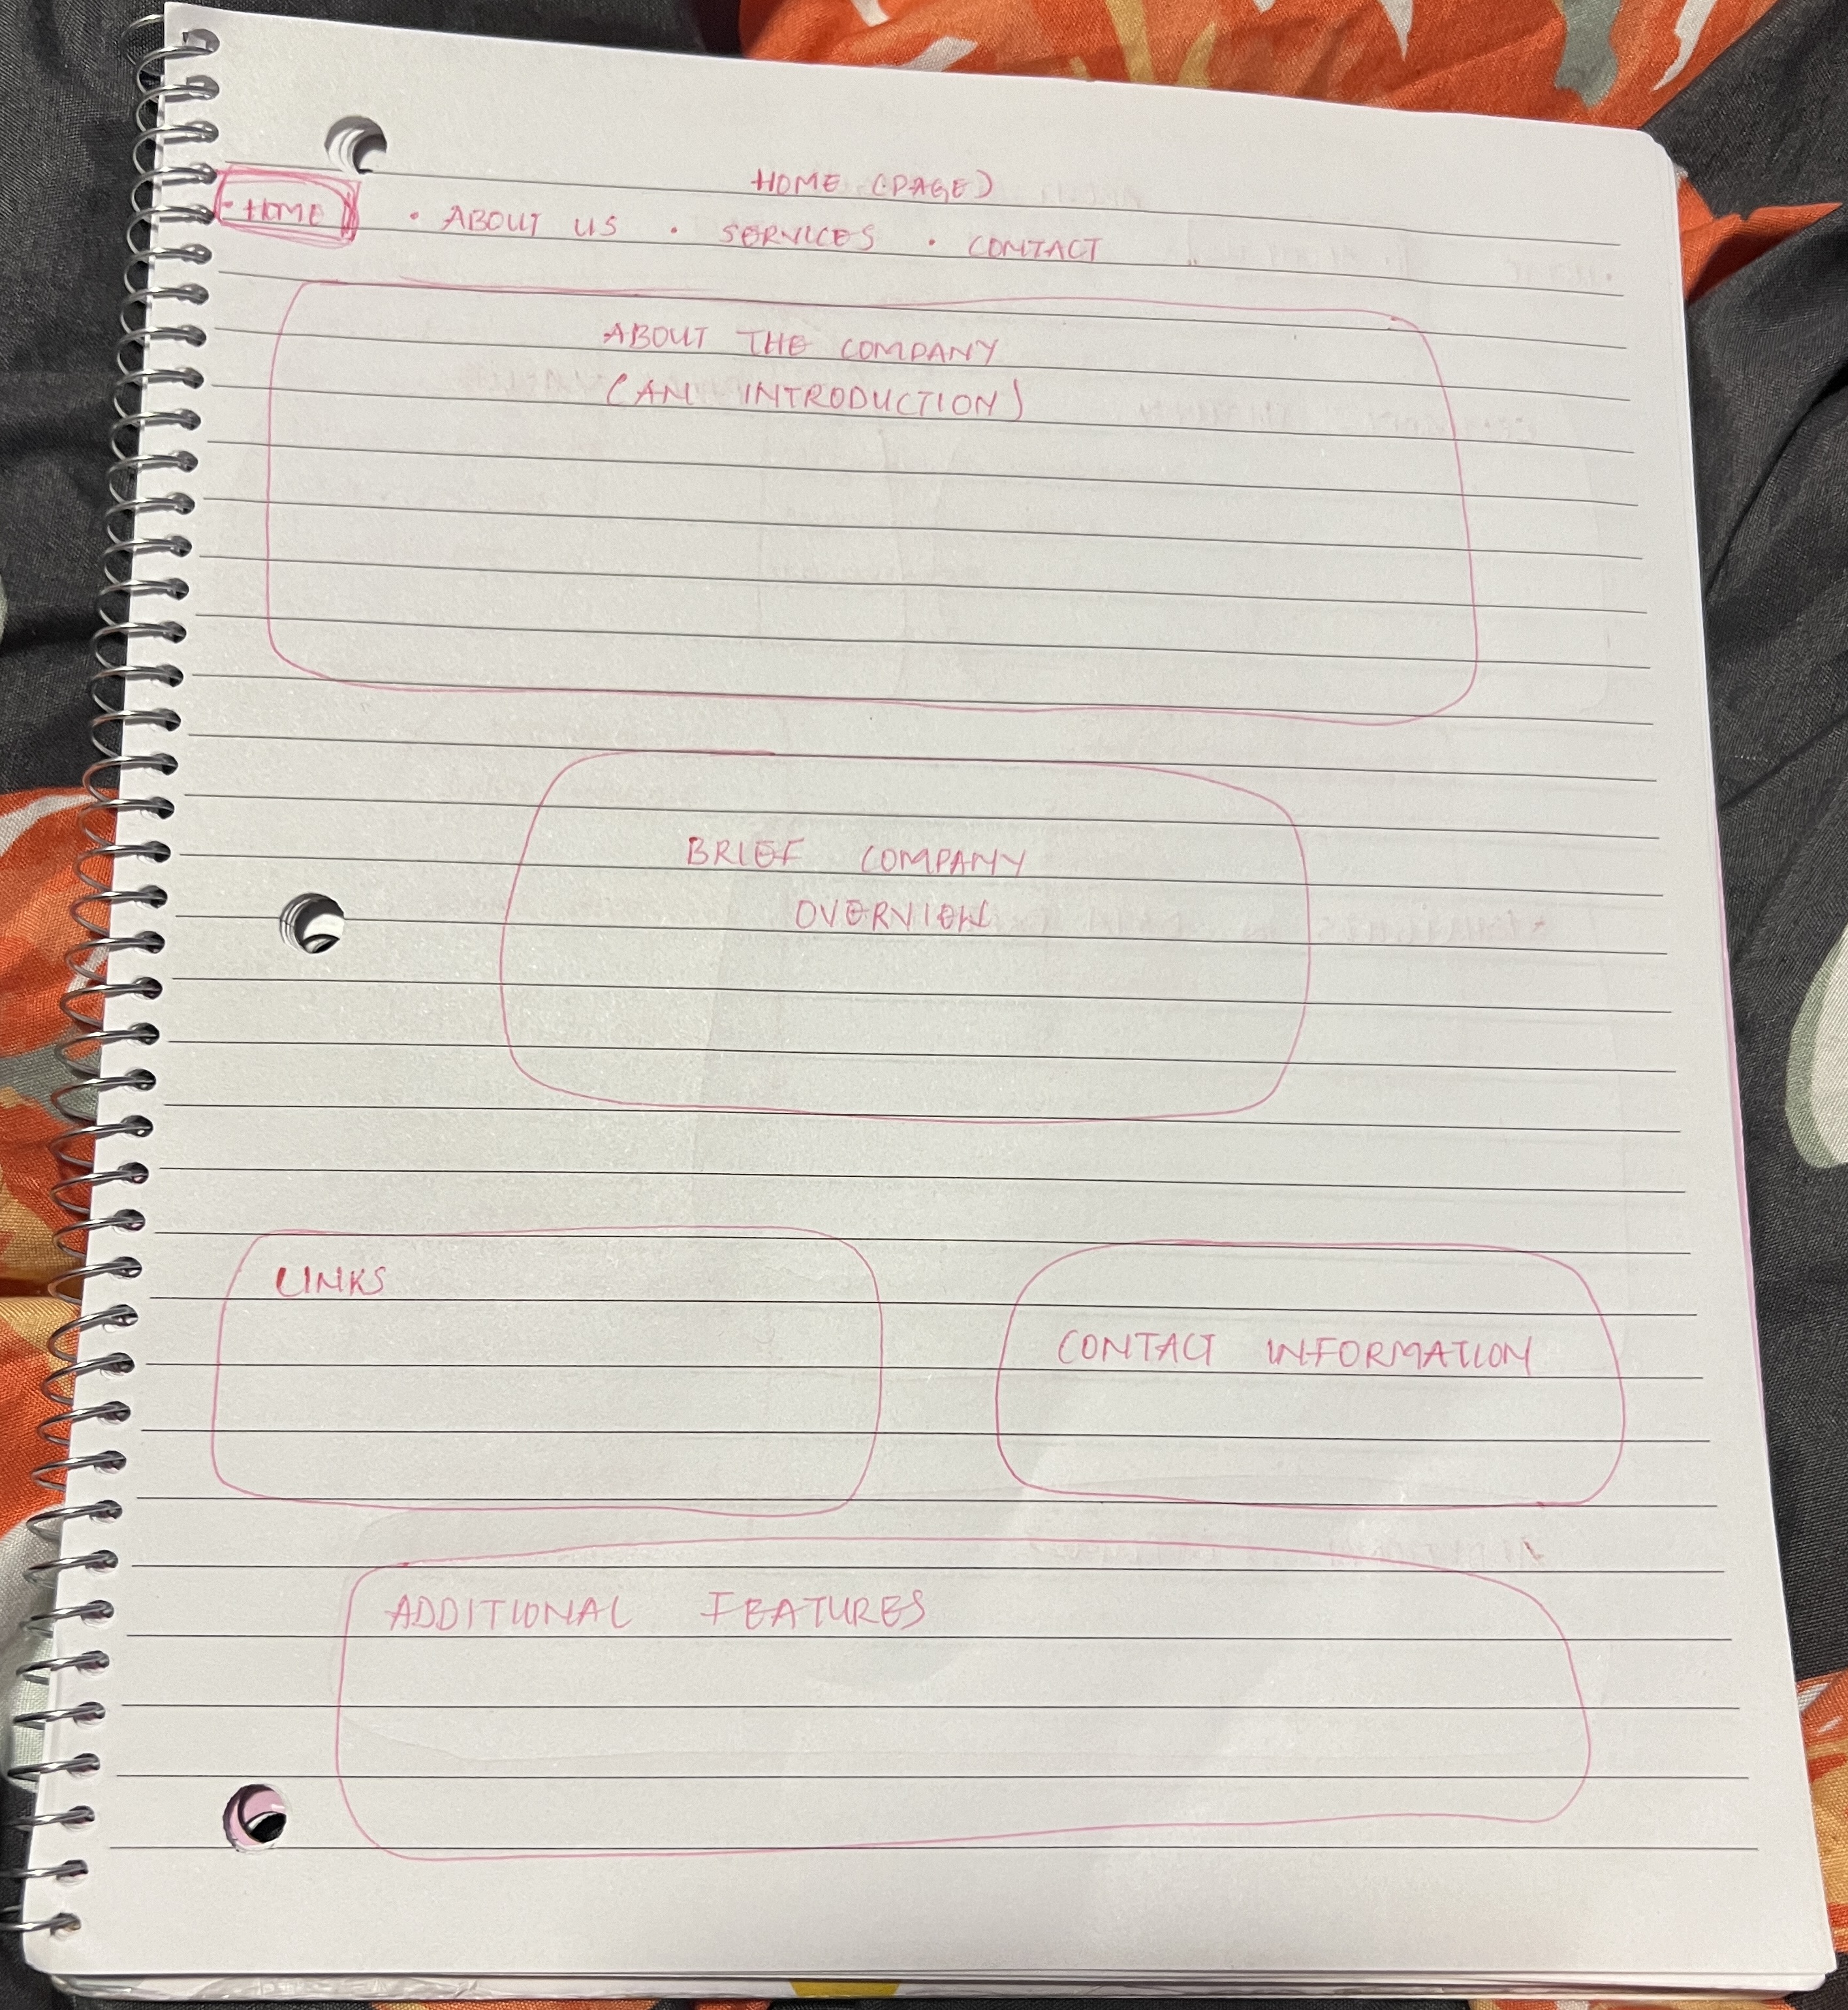 HOME (PAGE)
• HOME • ABOUT US • SERVICES • CONTACT
ABOUT THE COMPANY
(AN INTRODUCTION)
BRIEF COMPANY
OVERVIEW
LINKS
CONTACT INFORMATION
ADDITIONAL FEATURES